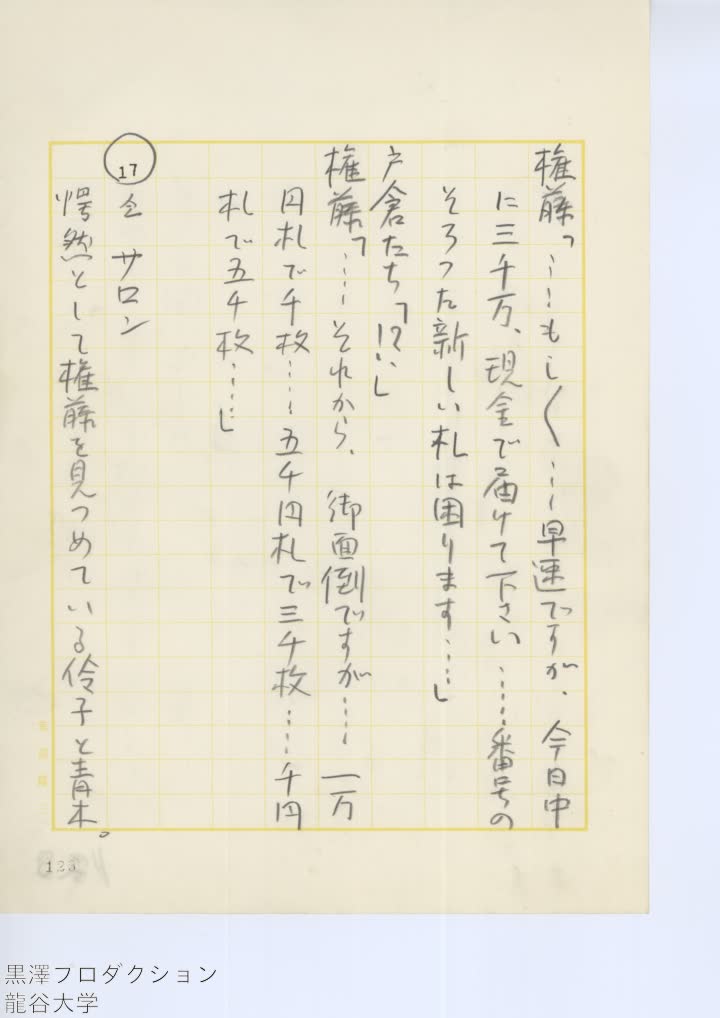 権藤「……もし〱……早速ですが、今日中
に三千万、現金で届けて下さい……番号の
そろった新しい札は困ります……」
戸倉たち「!?」
権藤「……それから、御面倒ですが……一万
円札で千枚……五千円札で三千枚……千円
札で五千枚……」
17 仝 サロン
愕然として権藤を見つめている伶子と青木。
黒澤プロダクション
龍谷大学